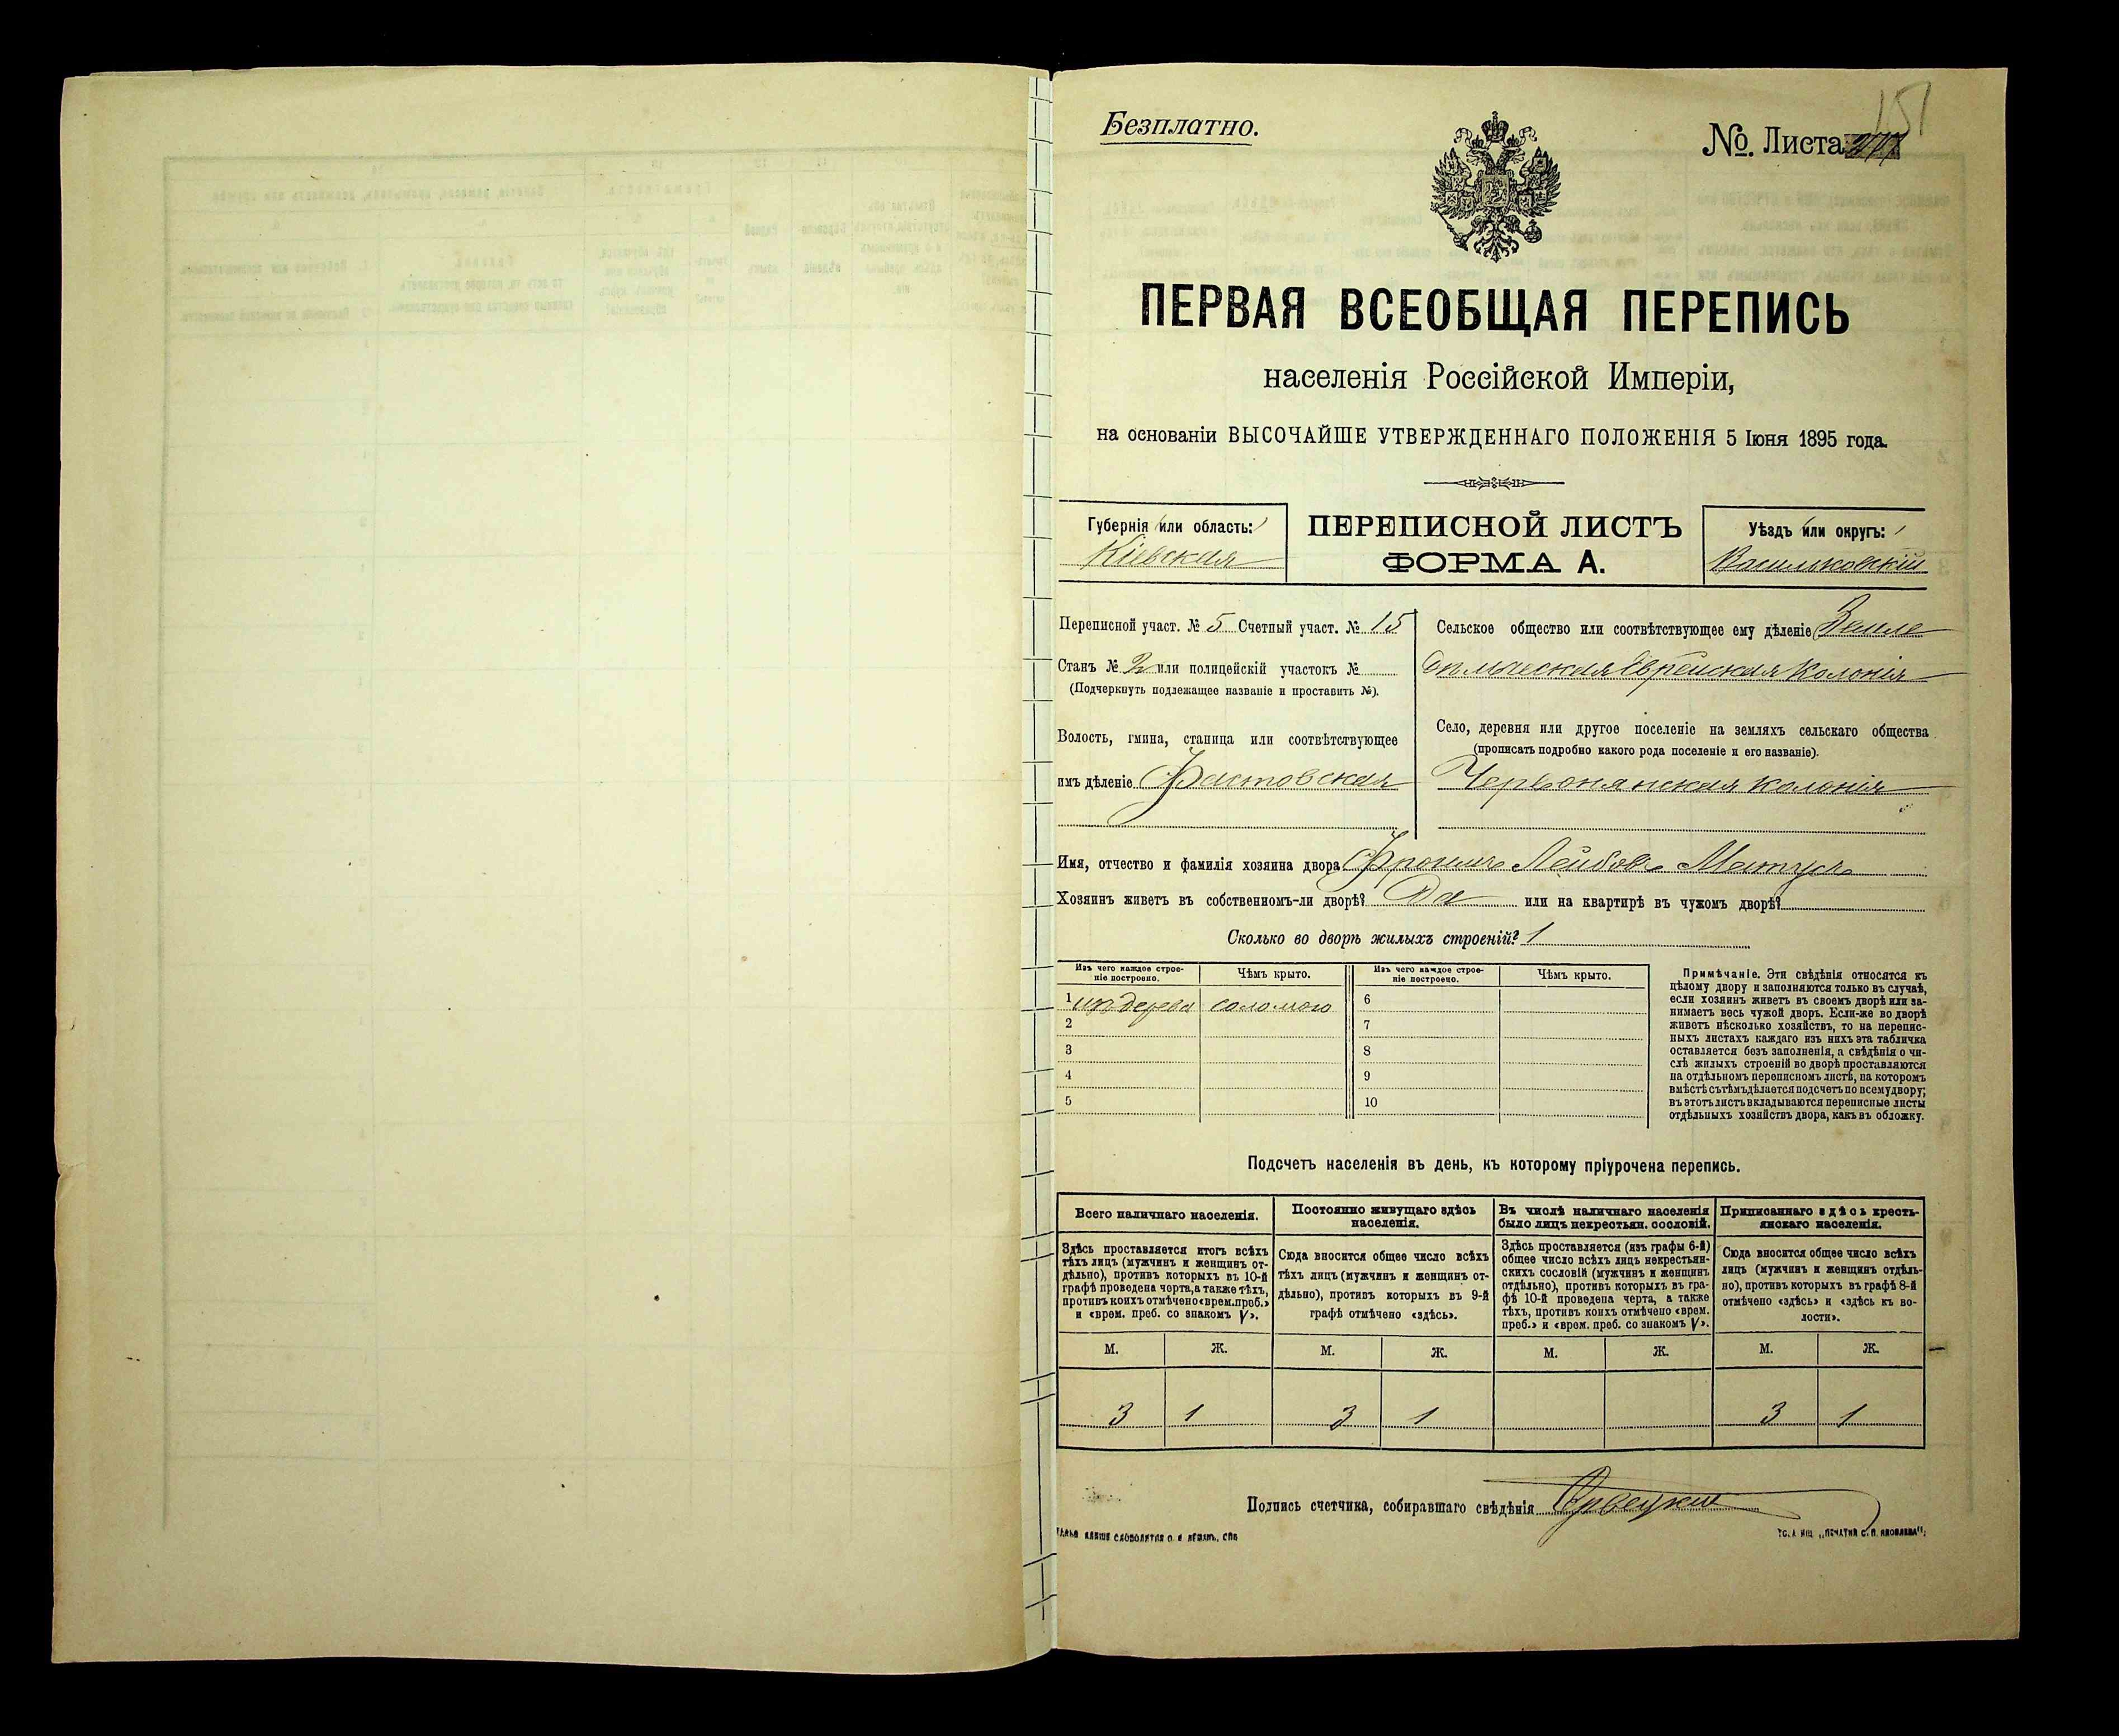 Безплатно.
№. Листа
151
ПЕРВАЯ ВСЕОБЩАЯ ПЕРЕПИСЬ
населенія Россійской Имперіи,
на основаніи ВЫСОЧАЙШЕ УТВЕРЖДЕННАГО ПОЛОЖЕНІЯ 5 Іюня 1895 года.
Губернія или область:
Кіевская
ПЕРЕПИСНОЙ ЛИСТЪ
ФОРМА А.
Уѣздъ или округъ:
Васильковскій
Переписной участ. № 5 Счетный участ. № 15
Станъ № 2 или полицейскій участокъ №
(Подчеркнуть подлежащее названіе и проставить №).
Волость, гмина, станица или соотвѣтствующее
имъ дѣленіе Фастовская
Сельское общество или соотвѣтствующее ему дѣленіе Земле
дѣльческая Еврейская Колонія
Село, деревня или другое поселеніе на земляхъ сельскаго общества
(прописать подробно какого рода поселеніе и его названіе).
Червонянская колонія
Имя, отчество и фамилія хозяина двора Фроимъ Лейбовъ Матусъ
Хозяинъ живетъ въ собственномъ-ли дворѣ? Да или на квартирѣ въ чужомъ дворѣ?
Сколько во дворѣ жилыхъ строеній? 1
Изъ чего каждое строе-
ніе построено.
Чѣмъ крыто.
Изъ чего каждое строе-
ніе построено.
Чѣмъ крыто.
1 изъ дерева соломою
2
3
4
5
6
7
8
9
10
Примѣчаніе. Эти свѣдѣнія относятся къ
цѣлому двору и заполняются только въ случаѣ,
если хозяинъ живетъ въ своемъ дворѣ или за-
нимаетъ весь чужой дворъ. Если-же во дворѣ
живетъ нѣсколько хозяйствъ, то на перепис-
ныхъ листахъ каждаго изъ нихъ эта табличка
оставляется безъ заполненія, а свѣдѣнія о чи-
слѣ жилыхъ строеній во дворѣ проставляются
на отдѣльномъ переписномъ листѣ, на которомъ
вмѣстѣ съ тѣмъ дѣлается подсчетъ по всему двору;
въ этотъ листъ вкладываются переписные листы
отдѣльныхъ хозяйствъ двора, какъ въ обложку.
Подсчетъ населенія въ день, къ которому пріурочена перепись.
Всего наличнаго населенія.
Здѣсь проставляется итогъ всѣхъ
тѣхъ лицъ (мужчинъ и женщинъ от-
дѣльно), противъ которыхъ въ 10-й
графѣ проведена черта, а также тѣхъ,
противъ коихъ отмѣчено «врем. преб.»
и «врем. преб. со знакомъ V».
Постоянно живущаго здѣсь
населенія.
Сюда вносится общее число всѣхъ
тѣхъ лицъ (мужчинъ и женщинъ от-
дѣльно), противъ которыхъ въ 9-й
графѣ отмѣчено «здѣсь».
Въ числѣ наличнаго населенія
было лицъ некрестьян. сословій.
Здѣсь проставляется (изъ графы 6-й)
общее число всѣхъ лицъ некрестьян-
скихъ сословій (мужчинъ и женщинъ
отдѣльно), противъ которыхъ въ гра-
фѣ 10-й проведена черта, а также
тѣхъ, противъ коихъ отмѣчено «врем.
преб.» и «врем. преб. со знакомъ V».
Приписаннаго здѣсь кресть-
янскаго населенія.
Сюда вносится общее число всѣхъ
лицъ (мужчинъ и женщинъ отдѣль-
но), противъ которыхъ въ графѣ 8-й
отмѣчено «здѣсь» и «здѣсь къ во-
лости».
М. Ж. М. Ж. М. Ж. М. Ж.
3 1 3 1 3 1
Подпись счетчика, собиравшаго свѣдѣнія